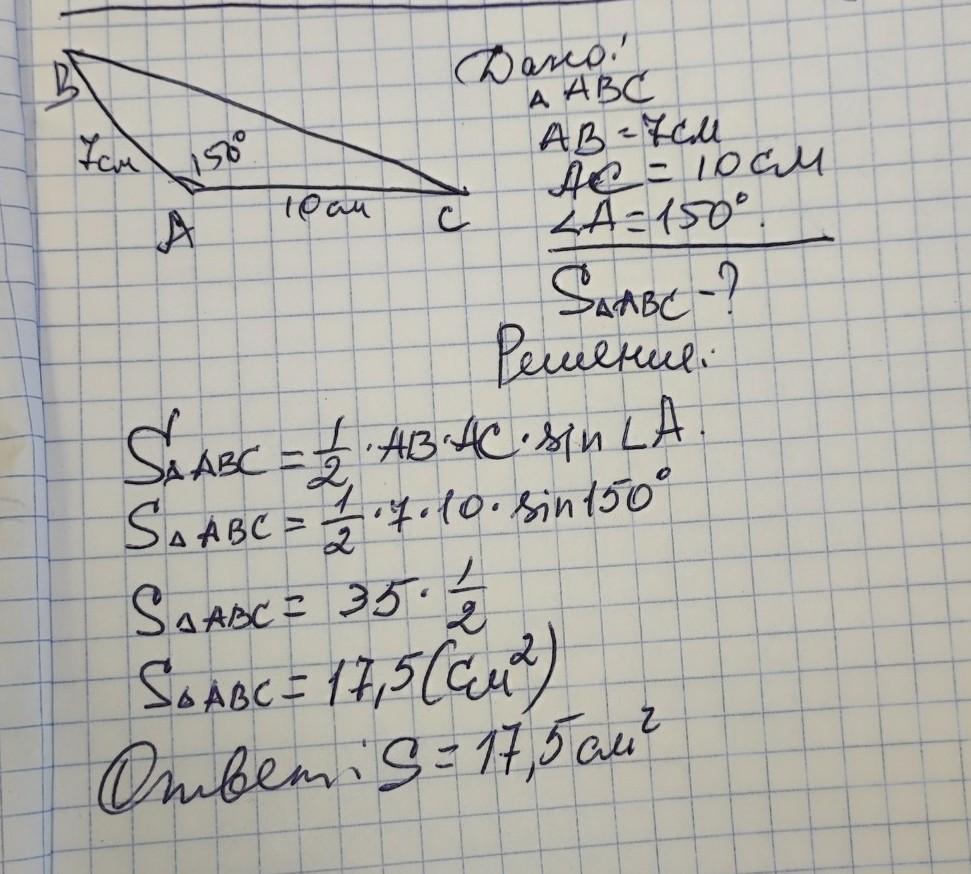 B
7см
150°
A
10см
C
Дано:
△ ABC
AB = 7см
AC = 10 см
∠A = 150°.
S△ABC - ?
Решение:
S△ABC = 1/2 · AB · AC · sin ∠A.
S△ABC = 1/2 · 7 · 10 · sin 150°
S△ABC = 35 · 1/2
S△ABC = 17,5 (см²)
Ответ: S = 17,5 см²